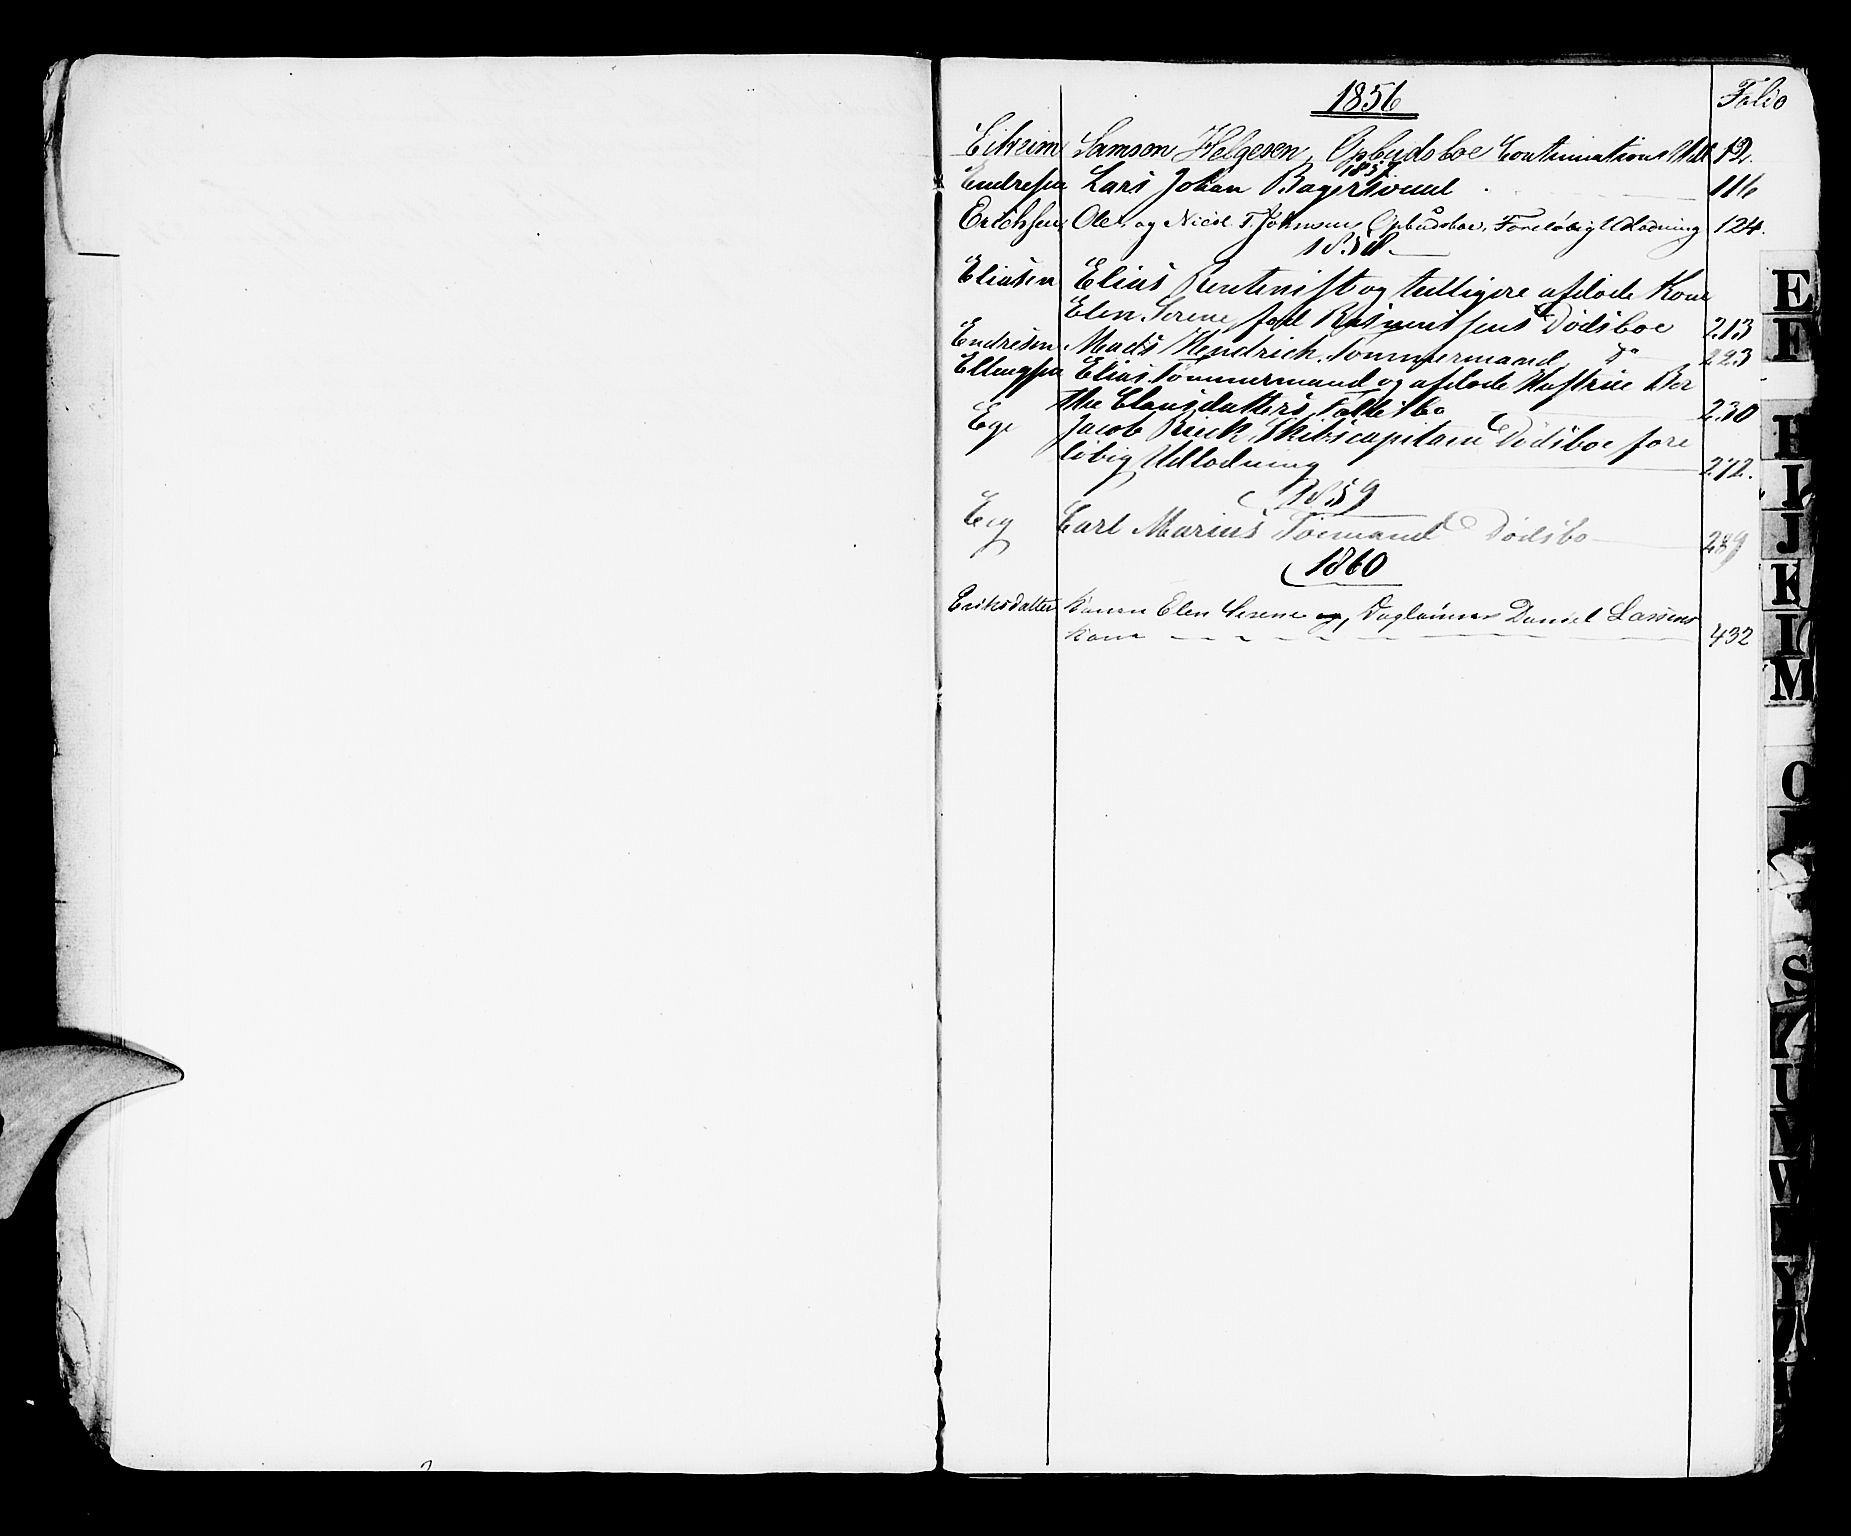 1856
Folio
Eikeim Samson Helgesen, Opbudsboe Continuations Udl 12.
1857
Endresen Lars Johan Bagersvend 116
Erichsen, Ole, og Nicol. T. Johnsens Opbudsboe, Foreløbig Udlodning 124.
1858
Eliasen Elias Rentenist og tidligere afdøde Kone
Elen Serene fød Rasmussens Dødsboe 213
Endresen Mads Hendrich. Tømmermand, do 223
Ellingsen Elias Tømmermand og afdøde Hustrue Ber
the Clausdatters Fællesbo 230
Ege Jacob Rieck, Skibscapitain Dødsboe fore
løbig Udlodning 272.
1859
Eeg Carl Marius Dødsbo 289
1860
Eriksdatter Karen Elen Serene Dagleiner Daniel Lassens
Kone 432
E
F
H
I
J
K
L
M
O
S
U
V
Y